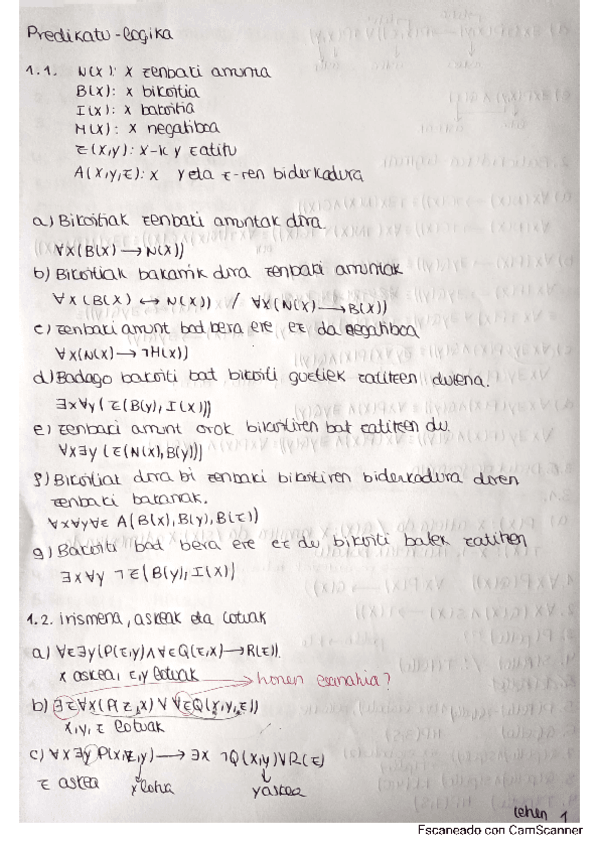 Predikatu-logika
1.1. N(x): x zenbaki arrunta
B(x): x bikoitia
I(x): x bakoitia
M(x): x negatiboa
Z(x,y): x-k y zatitu
A(x,y,z): x y eta z-ren biderkadura
a) Bikoitiak zenbaki arruntak dira.
∀x(B(x)→N(x))
b) Bikoitiak bakarrik dira zenbaki arruntak
∀x(B(x)↔N(x)) / ∀x(N(x)→B(x))
c) zenbaki arrunt bat bera ere ez da negatiboa
∀x(N(x)→¬M(x))
d) Badago bakoiti bat bikoiti guztiek zatitzen dutena.
∃x∀y(Z(B(y),I(x)))
e) zenbaki arrunt orok bikoitiren bat zatitzen du.
∀x∃y(Z(N(x),B(y)))
f) Bikoitiak dira bi zenbaki bikoitiren biderkadura diren
zenbaki bakarrak.
∀x∀y∀z A(B(x),B(y),B(z))
g) Bakoiti bat bera ere ez du bikoiti batek zatitzen
∃x∀y ¬Z(B(y),I(x))
1.2. irismena, askeak eta lotuak
a) ∀z∃y(P(z,y)∧∀zQ(z,x)→R(z)).
x askea, z,y lotuak → honen esanahia?
b) ∃z∀x(P(z,x)∨∀zQ(x,y,z))
x,y,z lotuak
c) ∀x∃y P(x,z,y)→∃x ¬Q(x,y)∨R(z)
z askea y lotua y askea
lehen 1
Escaneado con CamScanner